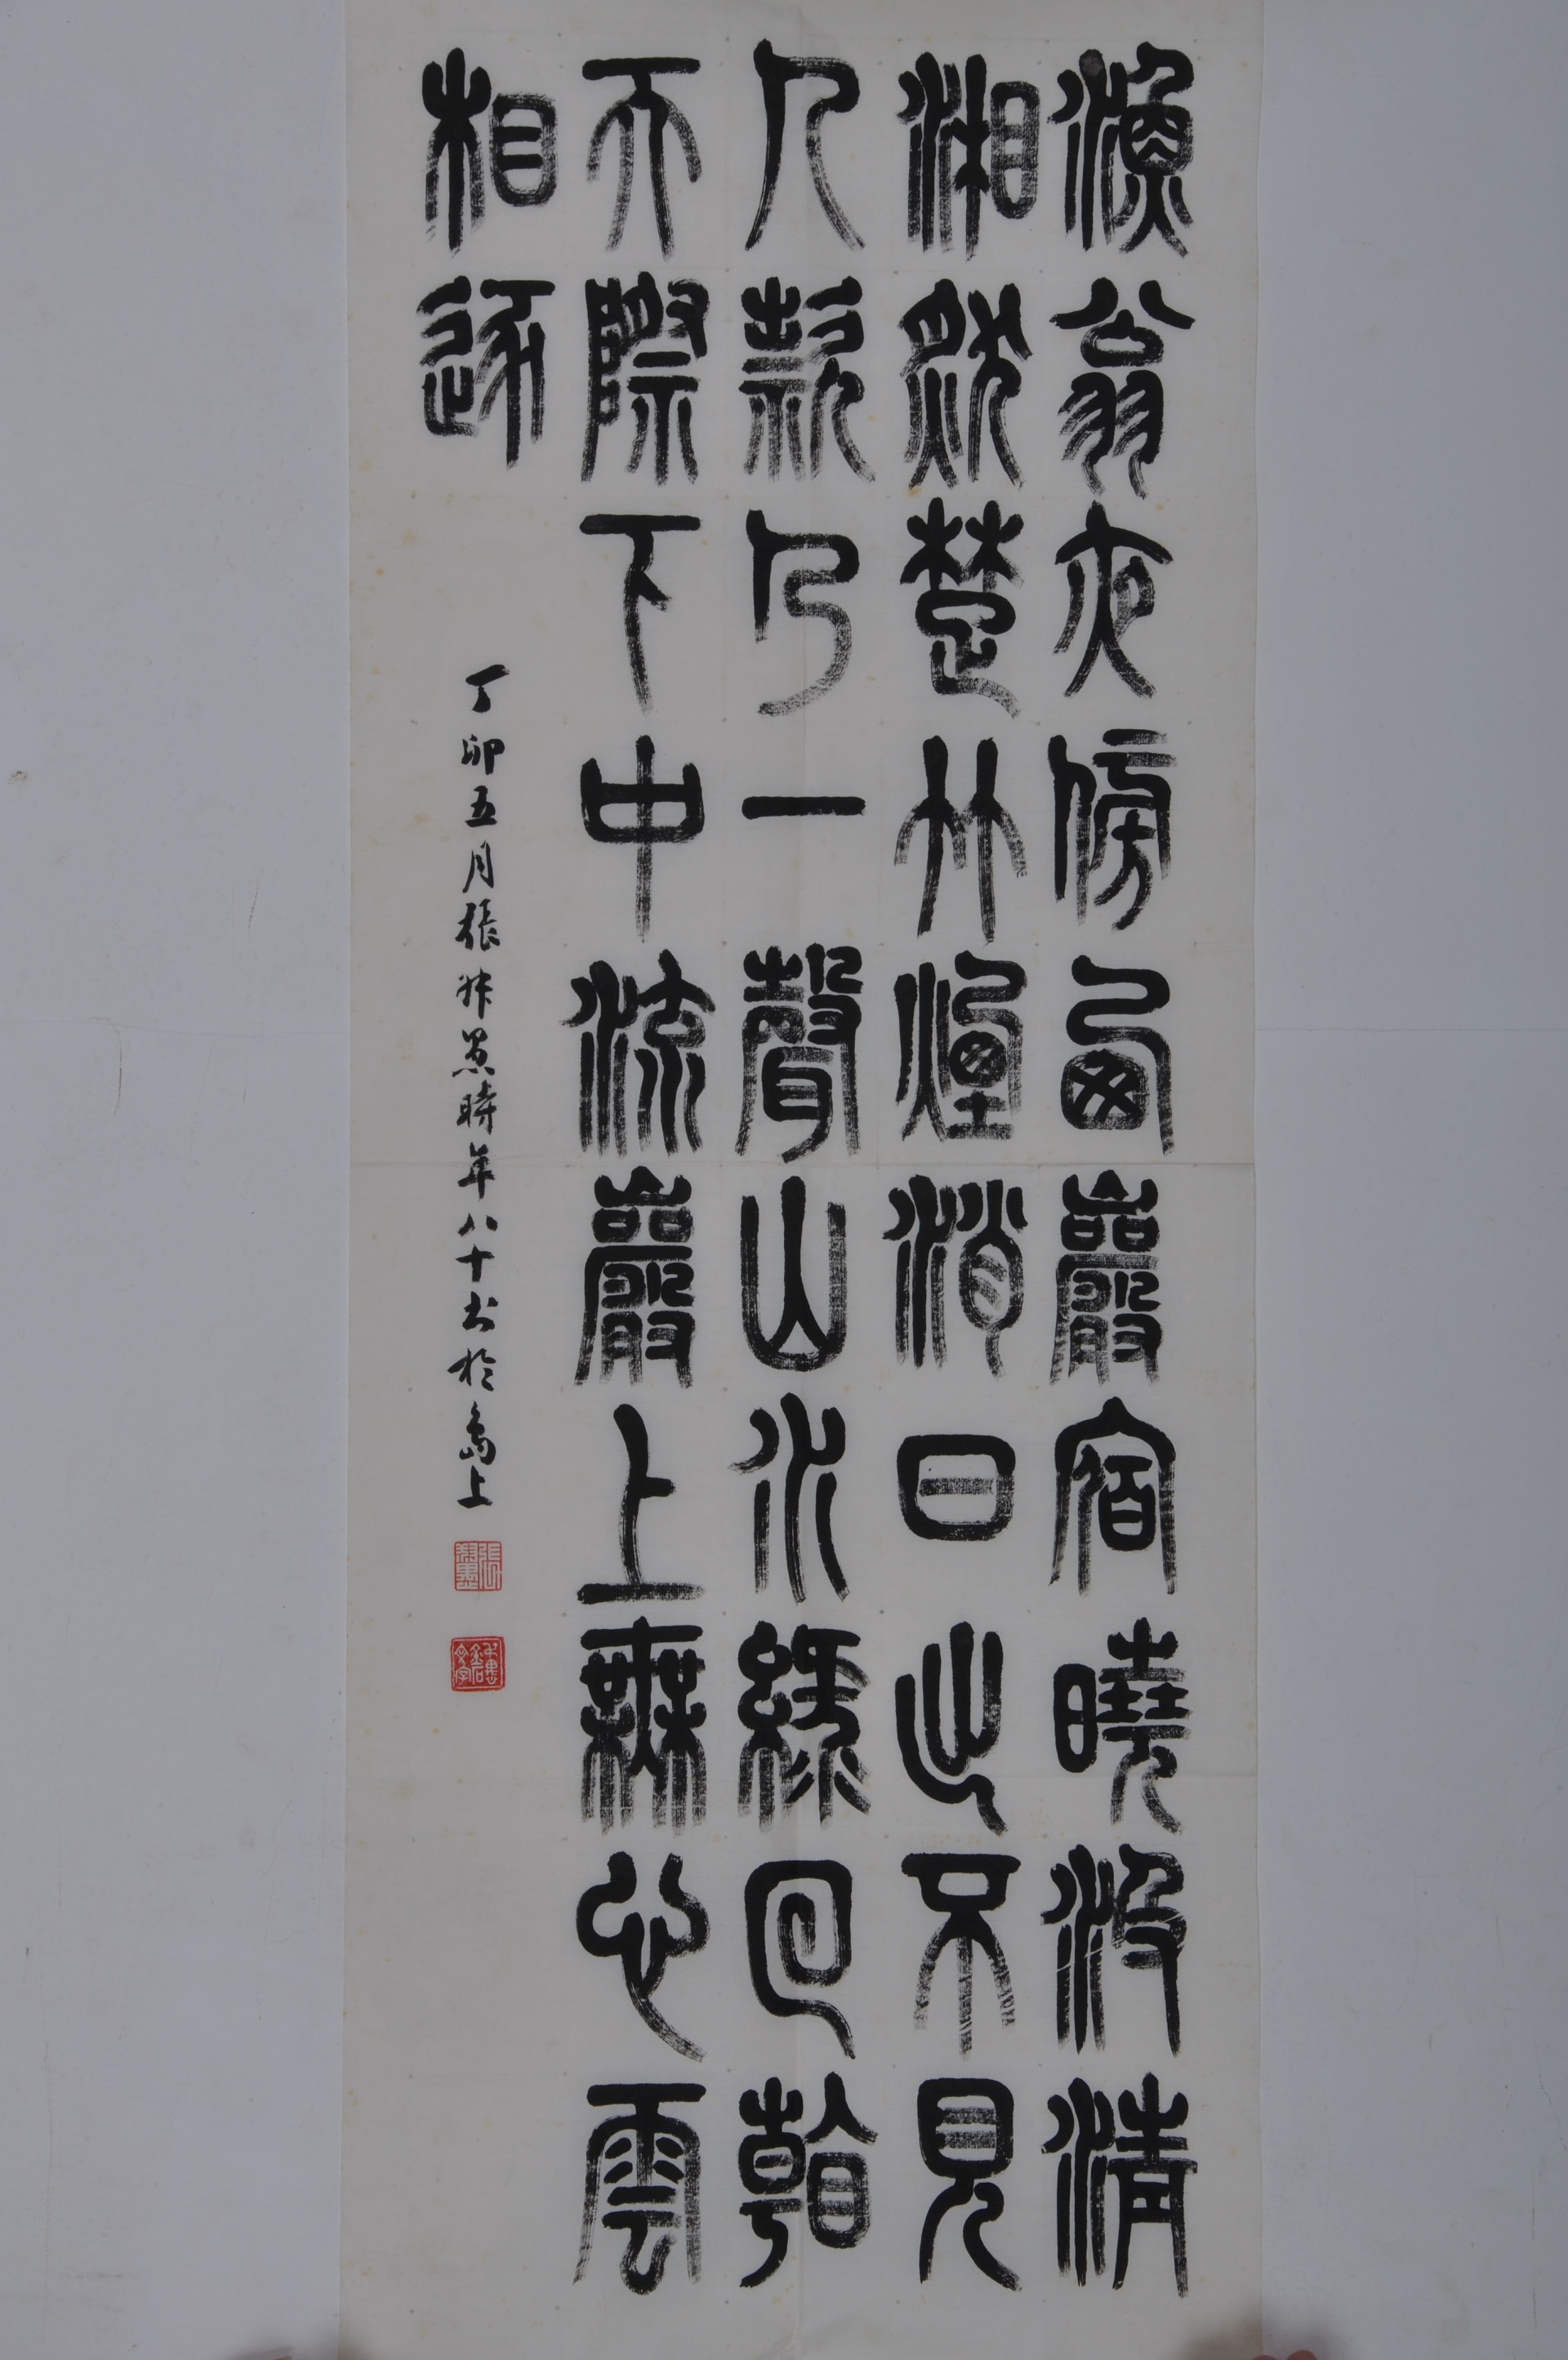 漁翁夜傍西巖宿曉汲清
湘然楚竹煙消日出不見
人欸乃一聲山水綠回看
天際下中流巖上無心雲
相逐
丁卯五月張叔愚時年八十書於島上